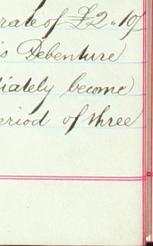 rate of £2.10/
s Debenture
iately become
eriod of three